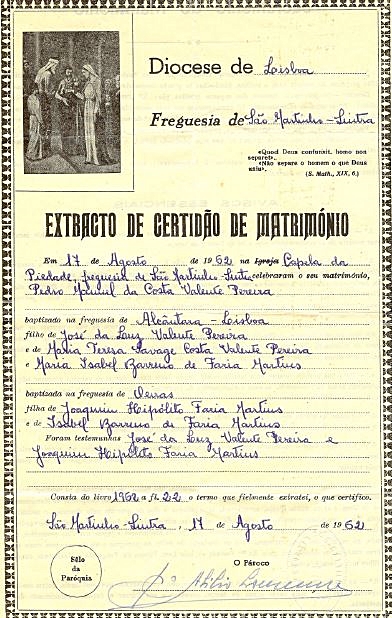 Diocese de Lisboa
Freguesia de São Martinho - Sintra
«Quod Deus conjunxit, homo non
separet».
«Não separe o homem o que Deus
uniu».
(S. Math., XIX, 6.)
EXTRACTO DE CERTIDÃO DE MATRIMÓNIO
Em 17 de Agosto de 1962 na Igreja Capela da
Piedade, freguesia de São Martinho-Sintra celebraram o seu matrimónio,
Pedro Manuel da Costa Valente Pereira
baptizado na freguesia de Alcântara - Lisboa
filho de José da Luz Valente Pereira
e de Maria Teresa Savage Costa Valente Pereira
e Maria Isabel Barreno de Faria Martins
baptizada na freguesia de Oeiras
filha de Joaquim Hipólito Faria Martins
e de Isabel Barreno de Faria Martins
Foram testemunhas José da Luz Valente Pereira e
Joaquim Hipólito Faria Martins
Consta do livro 1962 a fl. 22 o termo que fielmente extratei, o que certifico.
São Martinho-Sintra, 17 de Agosto de 1962
Sêlo
da
Paróquia
O Pároco